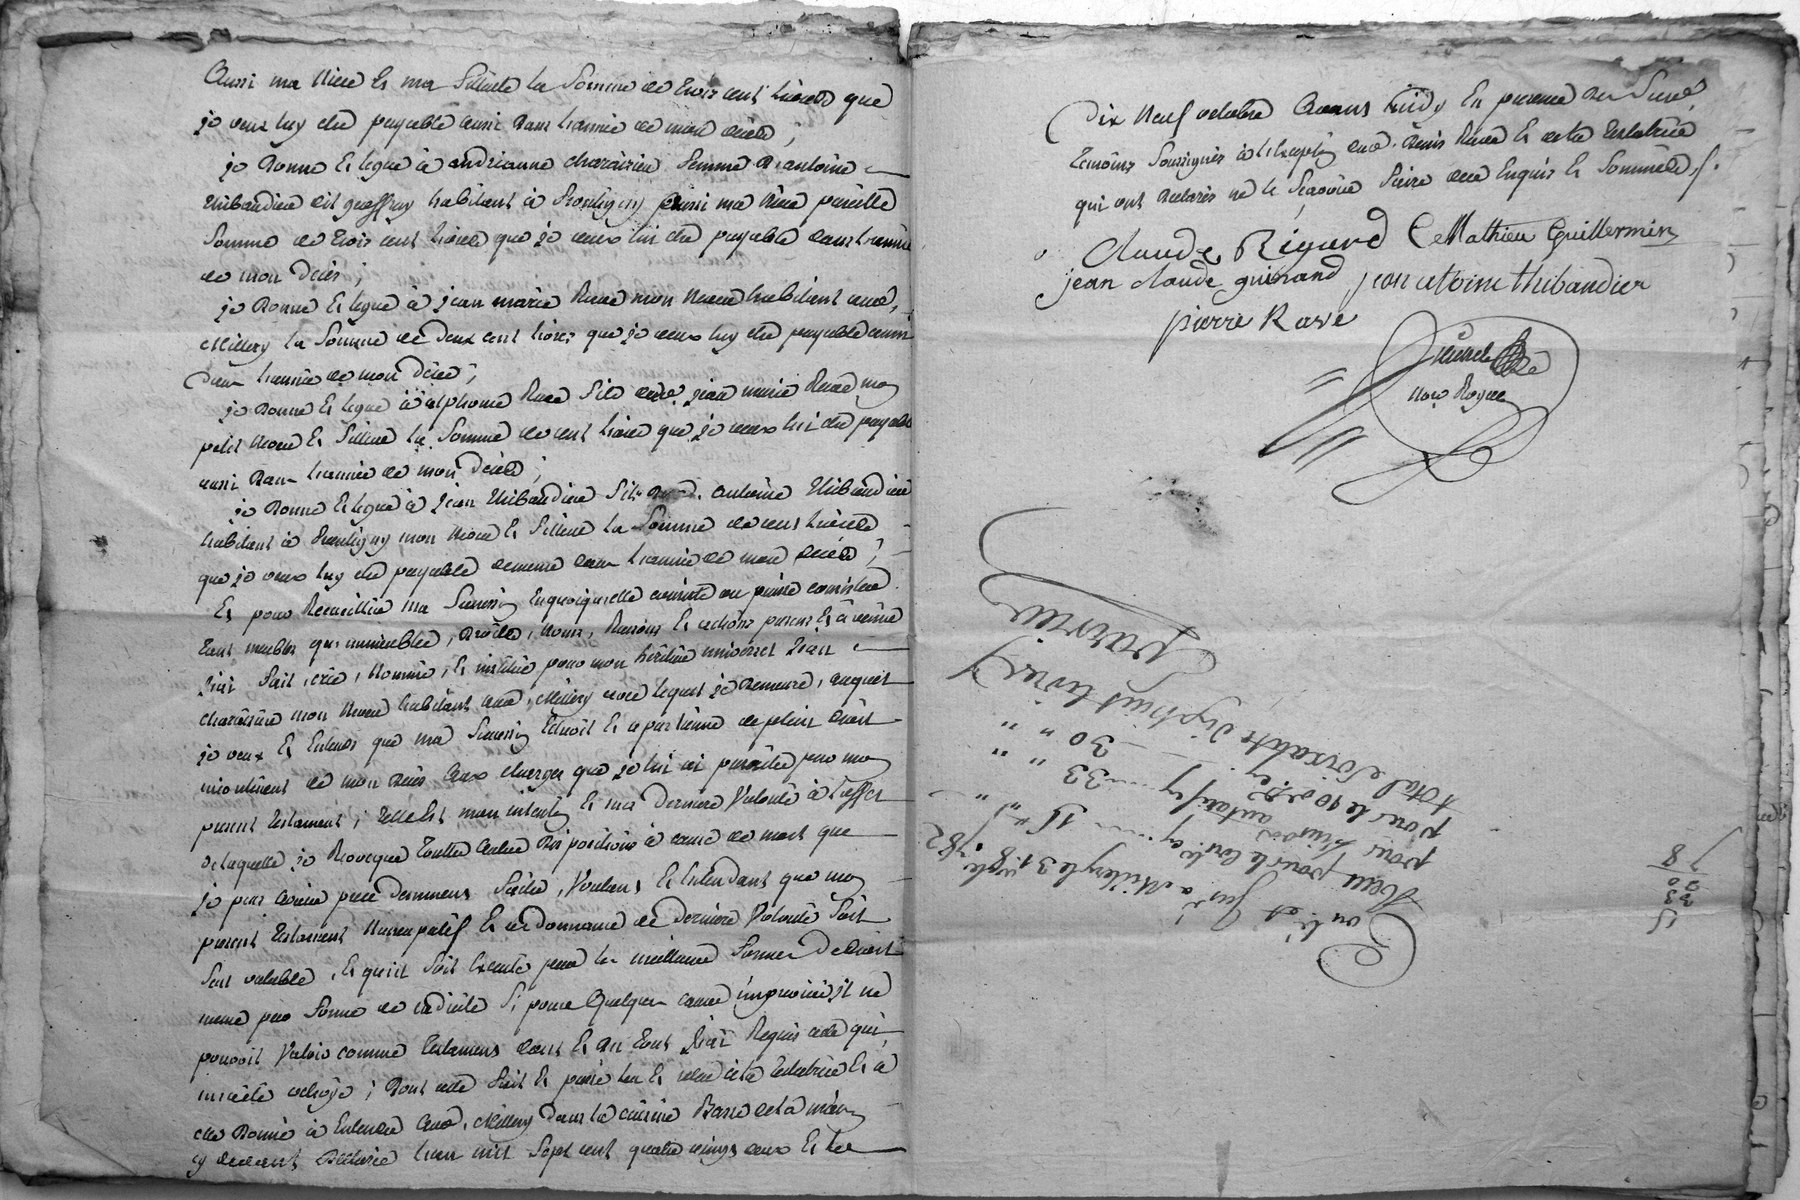 Aussi ma Niece Et ma filliole la Somme de trois cent livres que
je veux luy etre payable aussi dans l'année de mon décès ;
je Donne Et legue à andrianne charaisieu femme d'antoine
thibaudier dit geoffray habitant à aussi ma Niece pareille
Somme de trois cent livres que je veux lui etre payable dans l'année
de mon décès ;
je Donne Et legue à jean marie Rave mon Neveu habitant aud.
Millery la Somme de deux cent livres que je veux luy etre payable aussi
dans l'année de mon décès ;
je Donne Et legue à alphonse Rave fils dud. jean marie Rave mon
petit Neveu Et filleul la Somme de cent livres que je veux lui etre payable
aussi dans l'année de mon décès ;
je Donne Et legue à jean thibaudier fils dud. antoine thibaudier
habitant à mon Neveu Et filleul la Somme de cent livres
que je veux luy etre payable de meme dans l'année de mon décès ;
Et pour Recueillir ma Succession En quoiqu'elle consiste ou puisse consister
tant meubles qu'immeubles, droits, Noms, Raisons Et actions presents Et à venir
j'ai fait, crée, Nommé, Et institué pour mon héritier universel jean
mon Neveu habitant aud. Millery avec lequel je demeure, auquel
je veux Et Entends que ma Succession Echoit Et apartienne de plein droit
incontinent de mon décès aux charges que je lui ai par mon
present testament ; telle Est mon intention Et ma derniere Volonté à l'effet
de laquelle je Revoque toutte autre Disposition à cause de mort que
je puis avoir precedemment faite, Voulant Et Entendant que mon
present testament Nuncupatif Et ordonnance de derniere Volonté Soit
Seul valable, Et qu'il Soit Executé pour la meilleure forme de droit
meme par forme de codicile Si pour quelque cause imprevue il ne
pouvoit Valoir comme testament dont Et du tout j'ai Requis acte qui
m'a été octroyé ; Dont acte fait Et passé lu Et relu à la testatrice Et à
elle Donné à Entendre aud. Millery dans la cuisine Basse de la maison
cy devant l'an mil Sept cent quatre vingt deux Et le
Dix Neuf octobre avant midy En presence des Sieurs
temoins Soussignés à l'exception dud. Denis Rave Et de la testatrice
qui ont declarés ne le Scavoir faire de ce Enquis Et Sommés
Claude Rigard C Mathieu Guillermin
jean claude guinand jean antoine thibaudier
pierre Rave
Not. Royal
Contrôlé et Insinué à Millery le 31 8bre 1782
Reçu pour le con.le 15
pour autant 33
pour le 10 30
total Soixante Dix huit livres
15
33
30
78